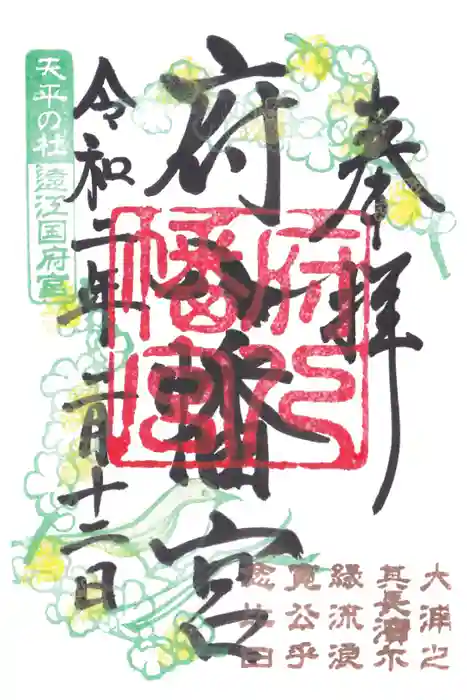 奉拝
府八幡宮
府八幡宮
令和二年二月十二日
天平の社 遠江国府宮
大浦之
其長濱尓
縁流浪
寛公乎
念比日